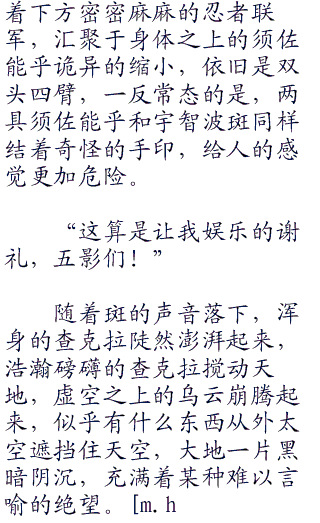 着下方密密麻麻的忍者联
军，汇聚于身体之上的须佐
能乎诡异的缩小，依旧是双
头四臂，一反常态的是，两
具须佐能乎和宇智波斑同样
结着奇怪的手印，给人的感
觉更加危险。
“这算是让我娱乐的谢
礼，五影们！”
随着斑的声音落下，浑
身的查克拉陡然澎湃起来，
浩瀚磅礴的查克拉搅动天
地，虚空之上的乌云崩腾起
来，似乎有什么东西从外太
空遮挡住天空，大地一片黑
暗阴沉，充满着某种难以言
喻的绝望。[m.h